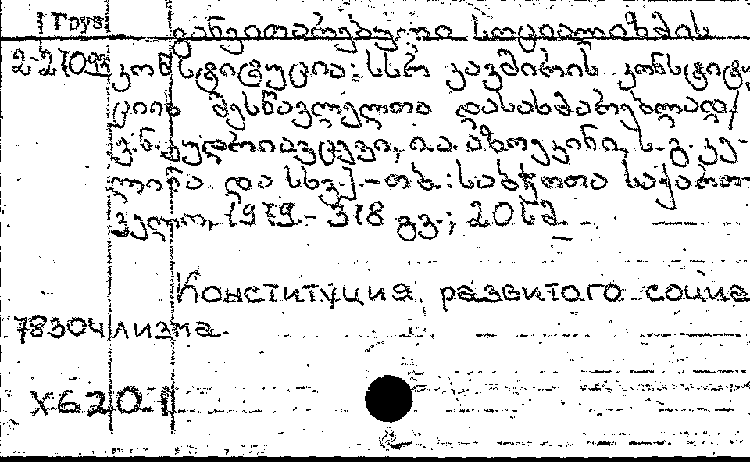 Груз
განვითარებული სოციალიზმის
2-27093 კონსტიტუცია: სსრ კავშირის კონსტიტუ
ციის შესწავლელთა დასახმარებლად/
ვ.ნ. კუდრიავცევი, ი.ა. აზოვკინი, ს.გ. კე-
ლინა და სხვ.]-თბ.: საბჭოთა საქართ
ველო, 1979.- 318 გვ.; 20სმ.
Конституция развитого социа
78304 лизма.
Х620.1